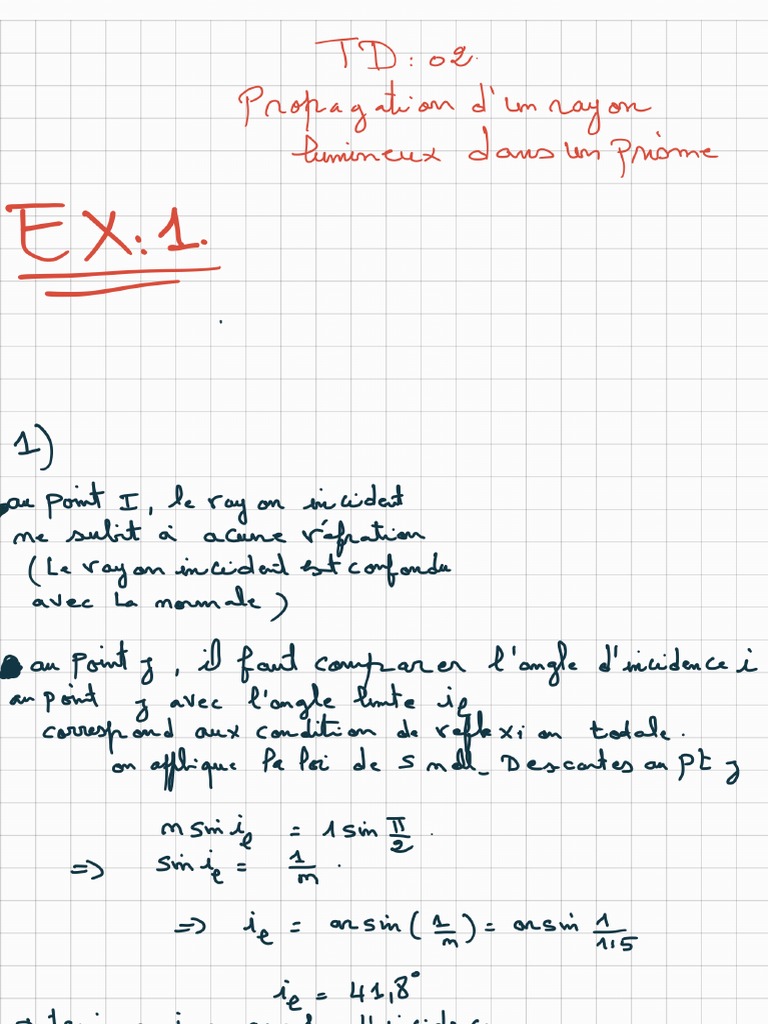 TD: 02.
Propagation d'un rayon
lumineux dans un Prisme
EX: 1.
1)
au point I, le rayon incident
ne subit à acune réfration
(Le rayon incident est confondu
avec la normale)
au Point J, il faut comparer l'angle d'incidence i
au point J avec l'angle limite iℓ
correspond aux condition de reflexion totale.
on applique la loi de Snell_Descartes au pt J
n sin iℓ = 1 sin π/2.
=> sin iℓ = 1/n.
=> iℓ = arsin(1/n) = arsin 1/1,5
iℓ = 41,8°